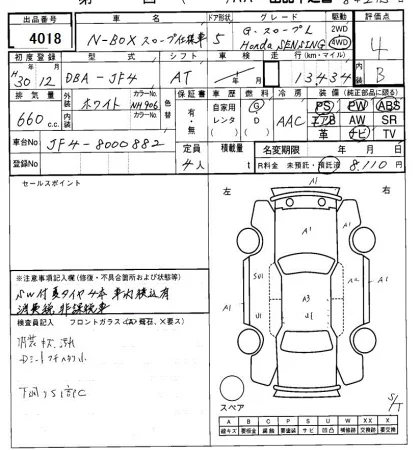 出品番号 車名 ドア形状 グレード 駆動 評価点
4018 N-BOX スロープ仕様車 5 G・スロープL Honda SENSING 2WD 4WD 4
初度登録 型式 シフト 車検 走行(km・マイル) 内装
H30/12 DBA-JF4 AT 年 月 13434 B
排気量 外装 ホワイト カラーNo NH906 色替 保証書 車歴 燃料 冷房 装備(純正部品に限る)
660c.c. 内装 カラーNo 有・無 自家用 レンタ ( ) G D ( ) AAC PS PW ABS
エアB AW SR
革 ナビ TV
車台No JF4-8000882 定員 積載量 名変期限 年 月 日
登録No 4人 t R料金 未預託・預託済 8,110円
セールスポイント
左 右
A1
A1
A1
A1 A2 A1
A3
U1 U1
※注意事項記入欄(修復・不具合箇所および状態等)
SW付夏タイヤ4本 車内積込有
消費税 非課税車
検査員記入 フロントガラス(A)飛石、X要ス)
内装キズ
スペア
S/T
A B C P S U W XX X
線キズ 要板金 腐蝕 要塗装 サビ 凹凸 補修跡 交換跡 要交換